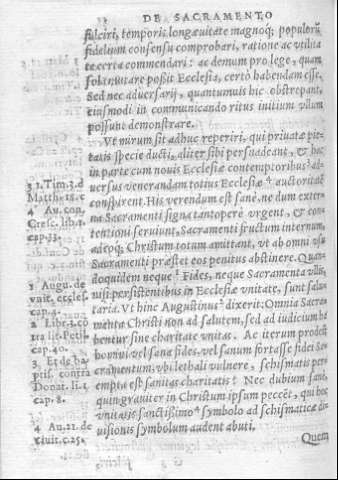 DE SACRAMENTO
fulciri, temporis longæuitate magnoq; populorũ
fidelium consensu comprobari, ratione ac vtilita
te certa commendari: ac demum pro lege, quam
sola mutare possit Ecclesia, certò habendam esse.
Sed nec aduersarij, quantumuis hic obstrepant,
eiusmodi in communicando ritus initium vdum
possunt demonstrare.
Vt mirum sit adhuc reperiri, qui priuatæ pie-
tatis specie ducti, aliter sibi persuadeant, & hac
in parte cum nouis Ecclesiæ contemptoribus ad-
uersus venerandam totius Ecclesiæ auctoritatẽ
conspirent. His verendum est sanè, ne dum exter-
na Sacramenti signa tantopere vrgent, & con-
tentioni seruiunt, Sacramenti fructum internum,
adeoq; Christum totum amittant, vt ab omni vsu
Sacramenti præstet eos penitus abstinere. Quan-
doquidem neque Fides, neque Sacramenta vllis,
nisi persistentibus in Ecclesiæ vnitate, sunt salu-
taria. Vt hinc Augustinus dixerit: Omnia Sacra-
menta Christi non ad salutem, sed ad iudicium ha
bentur sine charitate vnitatis. Ac iterum prodest
homini vel sana fides, vel sanum fortasse fidei Sa-
cramentum, vbi lethali vulnere, schismatis per-
empta est sanitas charitatis? Nec dubium sanè,
quin grauiter in Christum ipsum peccet, qui hoc
vnitatis sanctissimo symbolo ad schismaticæ di-
uisionis symbolum audent abuti.
Quem
3 1. Tim. 3. d
Matth. 18. c
4 Au. con.
Cresc. lib. 1.
cap. 33.
1 Augu. de
vnit. eccles.
cap. 4.
2 Libr. 3. cõ
tra lit. Petil.
cap. 40.
3 Et de ba-
ptis. contra
Donat. li. 1.
cap. 8.
4 Au. 21. de
ciuit. c. 25.